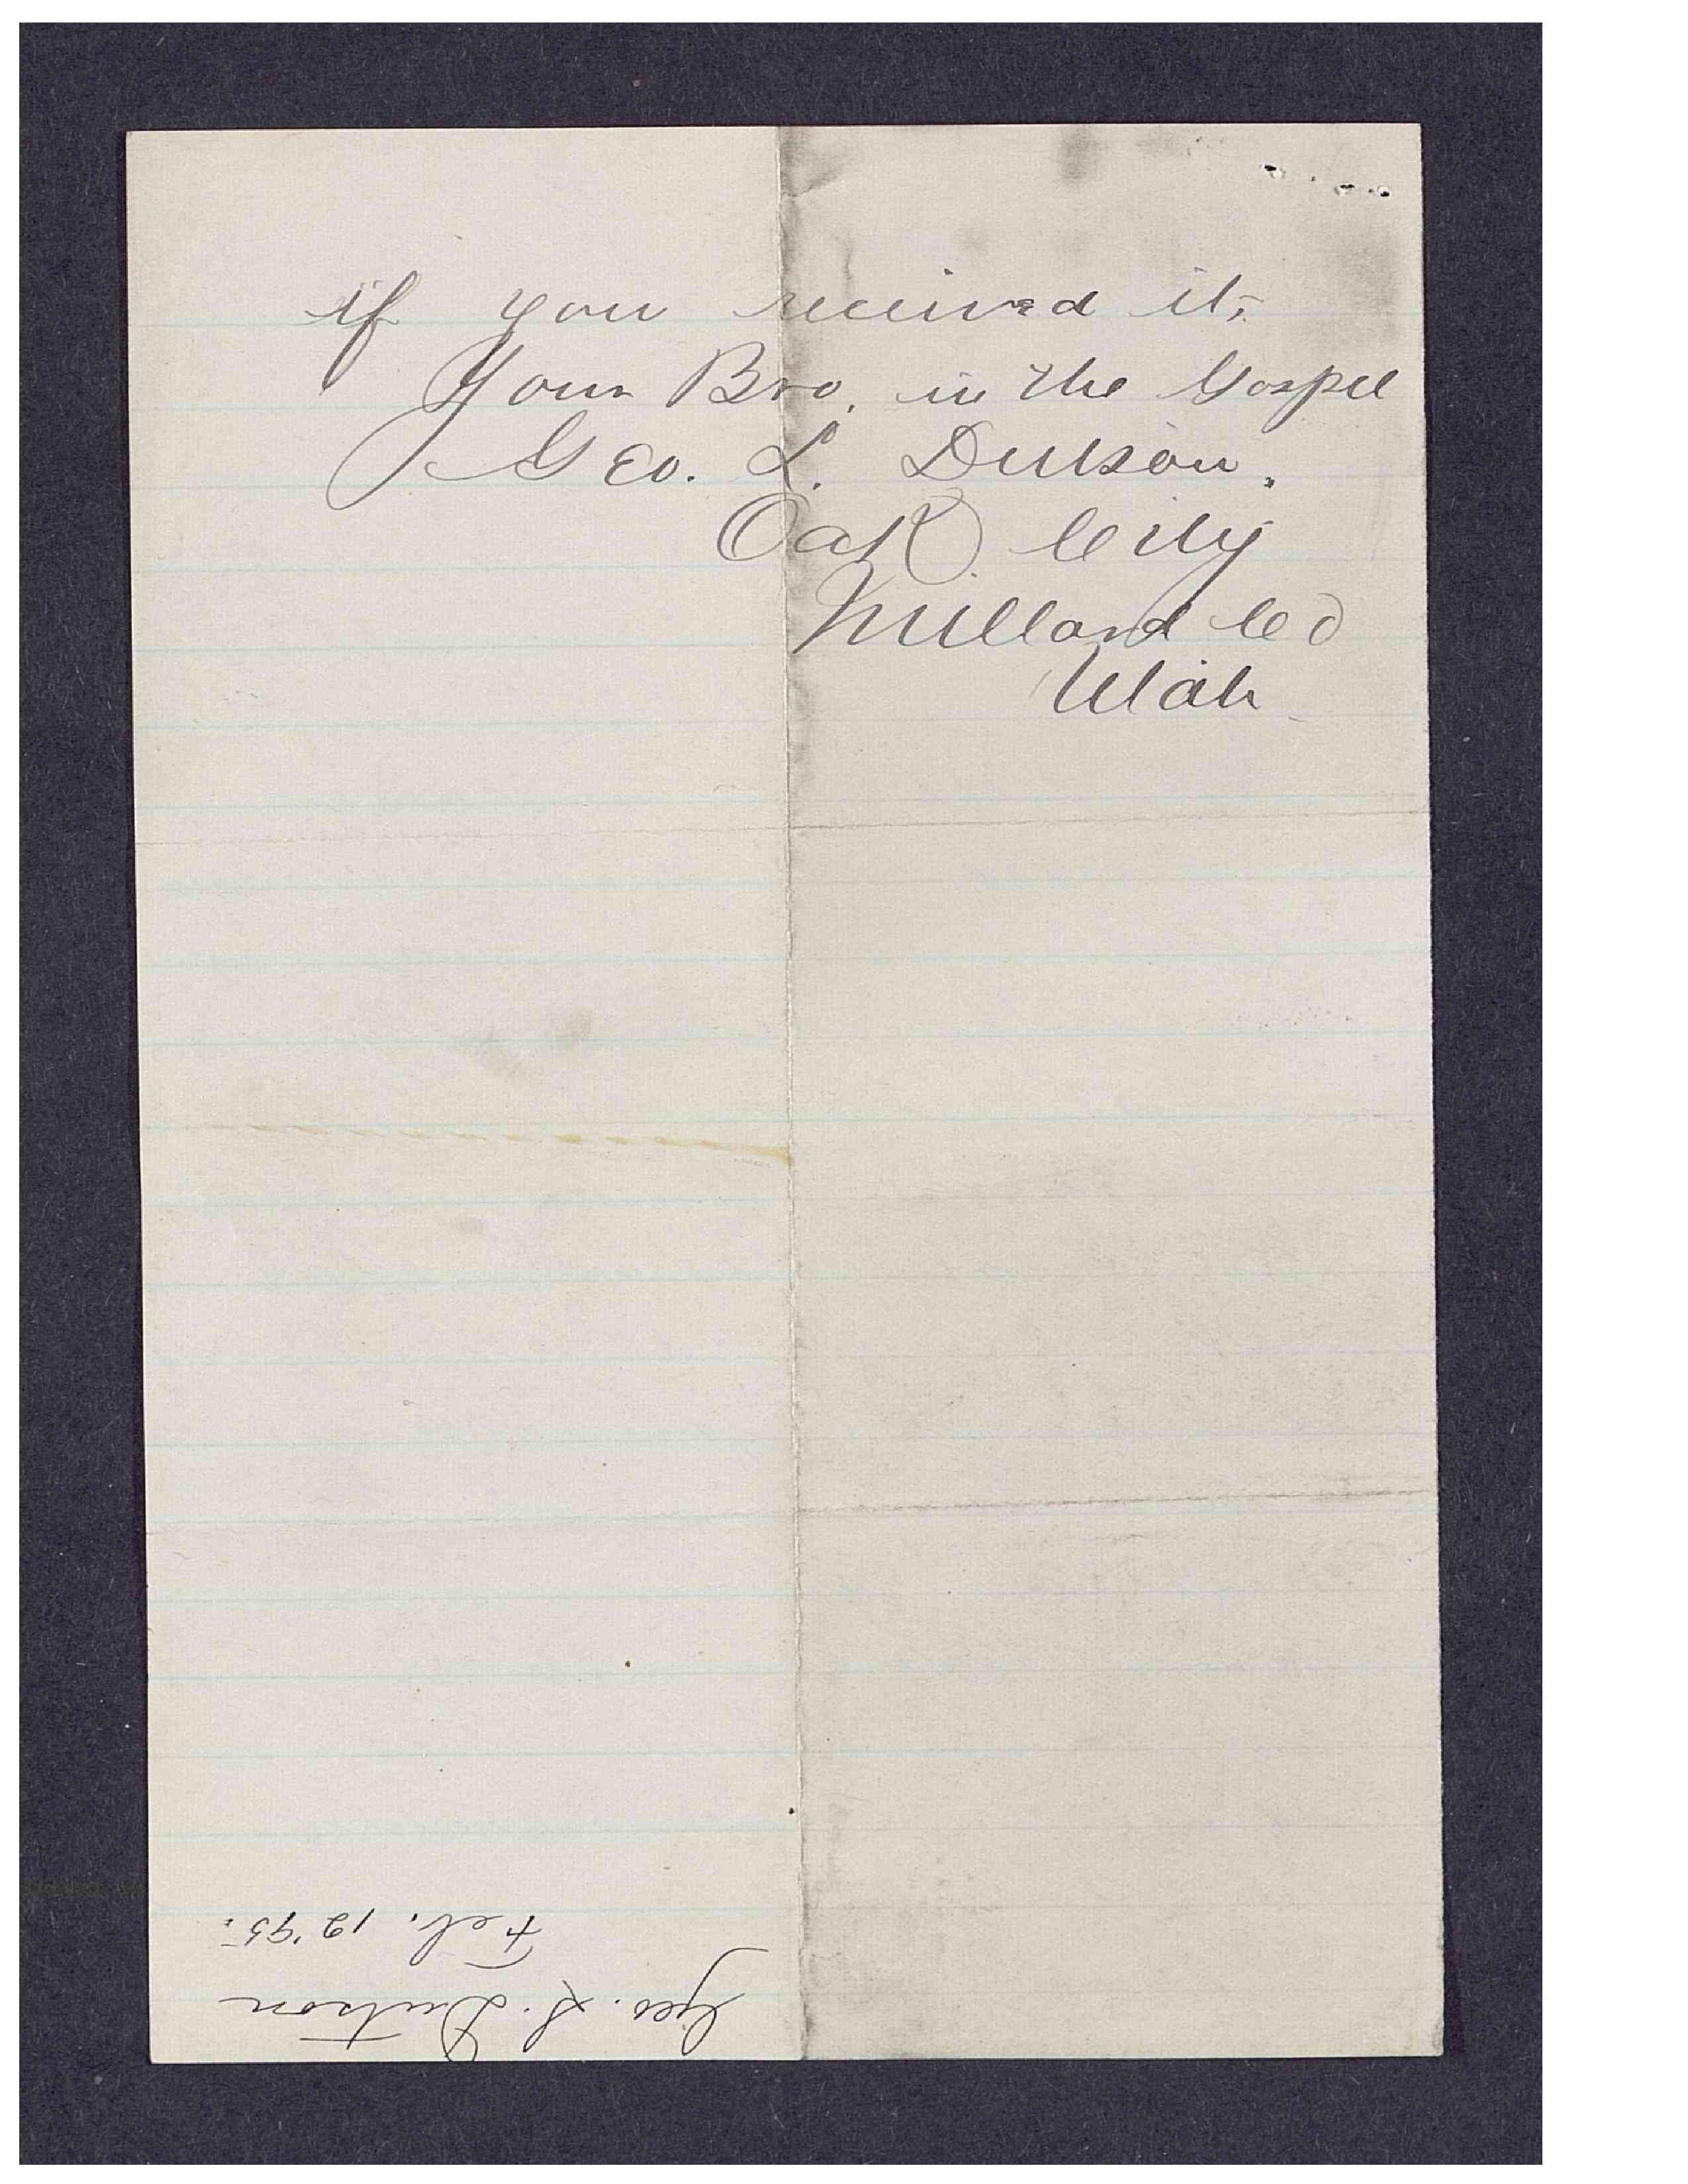 if you received it,
Your Bro. in the Gospel
Geo. L. Dutson.
Oak City
Millard Co
Utah
Geo. L. Dutson
Feb. 12 '95.